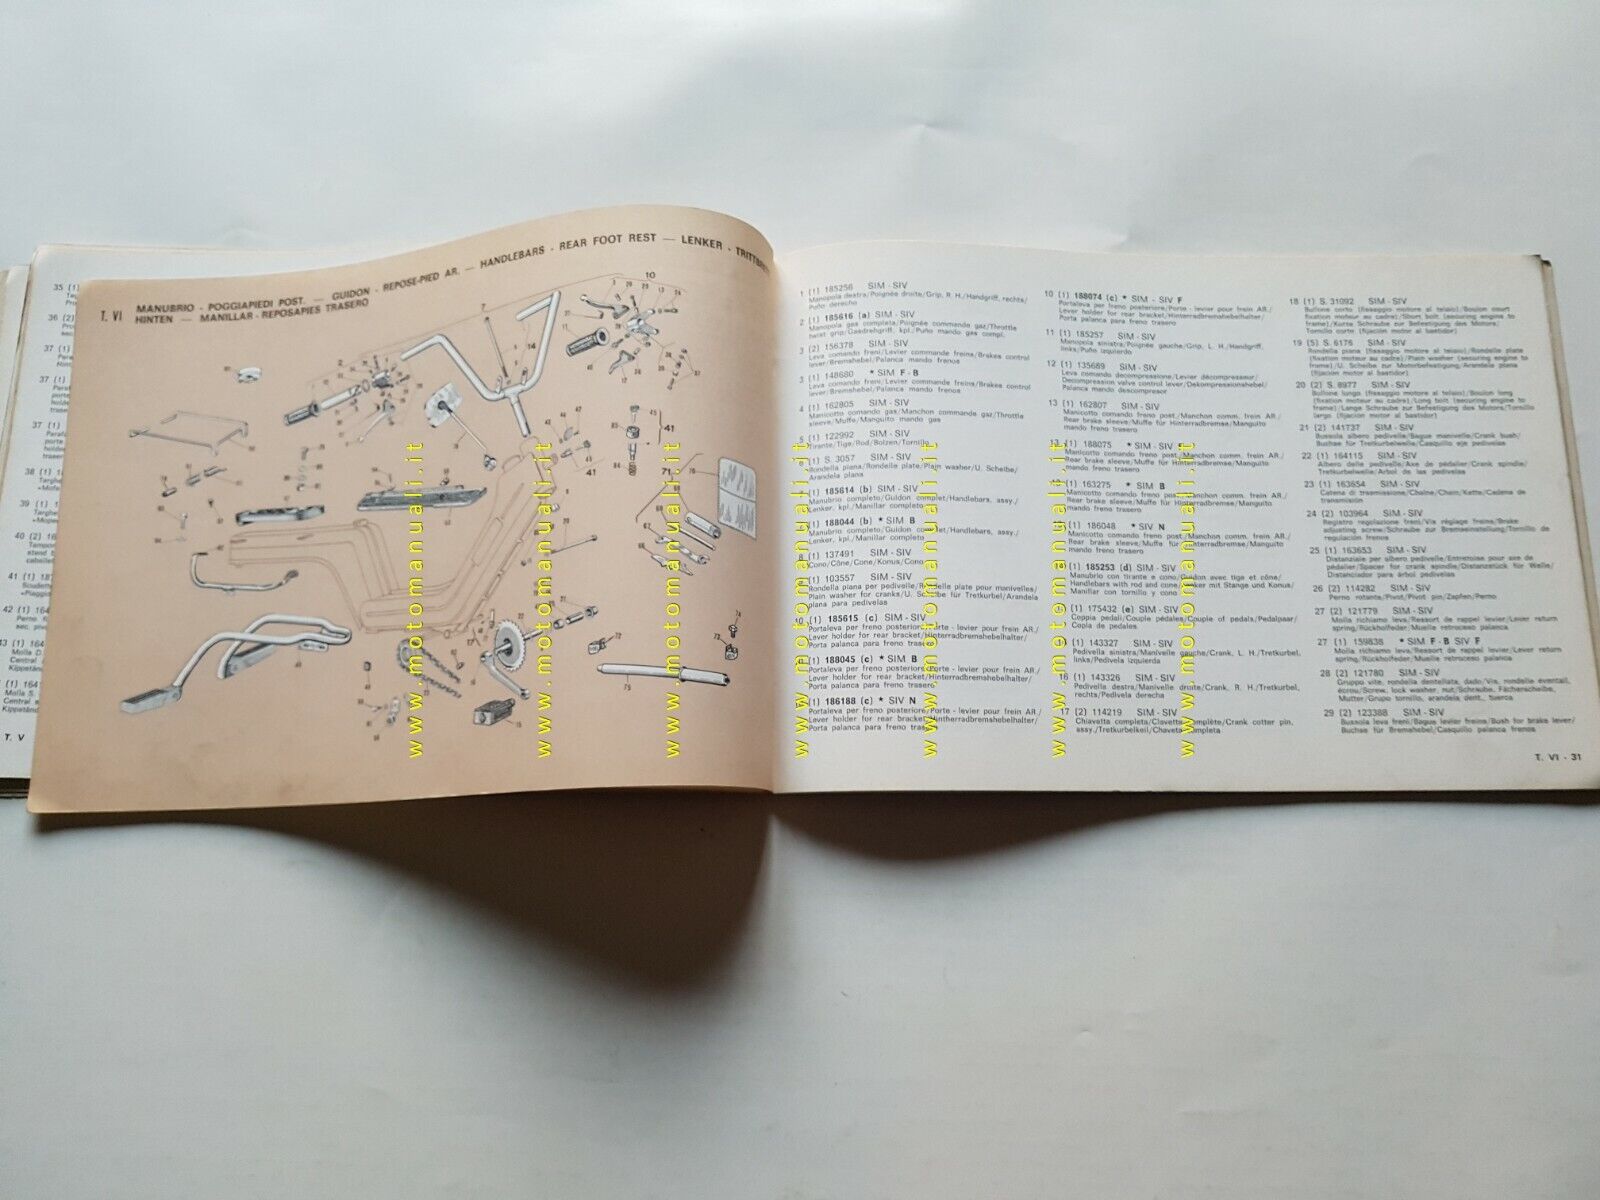 T. VI MANUBRIO - POGGIAPIEDI POST. — GUIDON - REPOSE-PIED AR. — HANDLEBARS - REAR FOOT REST — LENKER - TRITTBRETT
HINTEN — MANILLAR - REPOSAPIES TRASERO
1 (1) 185256 SIM - SIV
Manopola destra/Poignée droite/Grip, R. H./Handgriff, rechts/
Puño derecho
2 (1) 185616 (a) SIM - SIV
Manopola gas completa/Poignée commande gaz/Throttle
twist grip/Gasdrehgriff, kpl./Puño mando gas compl.
3 (2) 156378 SIM - SIV
Leva comando freni/Levier commande freins/Brakes control
lever/Bremshebel/Palanca mando frenos
3 (1) 148680 * SIM F - B
Leva comando freni/Levier commande freins/Brakes control
lever/Bremshebel/Palanca mando frenos
4 (1) 162805 SIM - SIV
Manicotto comando gas/Manchon commande gaz/Throttle
sleeve/Muffe/Manguito mando gas
5 (1) 122992 SIM - SIV
Tirante/Tige/Rod/Bolzen/Tornillo
(1) S. 3057 SIM - SIV
Rondella piana/Rondelle plate/Plain washer/U. Scheibe/
Arandela plana
(1) 185614 (b) SIM - SIV
Manubrio completo/Guidon complet/Handlebars, assy./
Lenker, kpl./Manillar completo
(1) 188044 (b) * SIM B
Manubrio completo/Guidon complet/Handlebars, assy./
Lenker, kpl./Manillar completo
8 (1) 137491 SIM - SIV
Cono/Cône/Cone/Konus/Cono
(1) 103557 SIM - SIV
Rondella piana per pedivelle/Rondelle plate pour manivelles/
Plain washer for cranks/U. Scheibe für Tretkurbel/Arandela
plana para pedivelas
10 (1) 185615 (c) SIM - SIV
Portaleva per freno posteriore/Porte - levier pour frein AR./
Lever holder for rear bracket/Hinterradbremshebelhalter/
Porta palanca para freno trasero
(1) 188045 (c) * SIM B
Portaleva per freno posteriore/Porte - levier pour frein AR./
Lever holder for rear bracket/Hinterradbremshebelhalter/
Porta palanca para freno trasero
(1) 186188 (c) * SIV N
Portaleva per freno posteriore/Porte - levier pour frein AR./
Lever holder for rear bracket/Hinterradbremshebelhalter/
Porta palanca para freno trasero
10 (1) 188074 (c) * SIM - SIV F
Portaleva per freno posteriore/Porte - levier pour frein AR./
Lever holder for rear bracket/Hinterradbremshebelhalter/
Porta palanca para freno trasero
11 (1) 185257 SIM - SIV
Manopola sinistra/Poignée gauche/Grip, L. H./Handgriff,
links/Puño izquierdo
12 (1) 135689 SIM - SIV
Leva comando decompressione/Levier décompresseur/
Decompression valve control lever/Dekompressionshebel/
Palanca mando descompresor
13 (1) 162807 SIM - SIV
Manicotto comando freno post./Manchon comm. frein AR./
Rear brake sleeve/Muffe für Hinterradbremse/Manguito
mando freno trasero
13 (1) 188075 * SIM - SIV F
Manicotto comando freno post./Manchon comm. frein AR./
Rear brake sleeve/Muffe für Hinterradbremse/Manguito
mando freno trasero
(1) 163275 * SIM B
Manicotto comando freno post./Manchon comm. frein AR./
Rear brake sleeve/Muffe für Hinterradbremse/Manguito
mando freno trasero
(1) 186048 * SIV N
Manicotto comando freno post./Manchon comm. frein AR./
Rear brake sleeve/Muffe für Hinterradbremse/Manguito
mando freno trasero
14 (1) 185253 (d) SIM - SIV
Manubrio con tirante e cono/Guidon avec tige et cône/
Handlebars with rod and cone/Lenker mit Stange und Konus/
Manillar con tornillo y cono
(1) 175432 (e) SIM - SIV
Coppia pedali/Couple pédales/Couple of pedals/Pedalpaar/
Copia de pedales
(1) 143327 SIM - SIV
Pedivella sinistra/Manivelle gauche/Crank, L. H./Tretkurbel,
links/Pedivela izquierda
16 (1) 143326 SIM - SIV
Pedivelle destra/Manivelle droite/Crank, R. H./Tretkurbel,
rechts/Pedivela derecha
17 (2) 114219 SIM - SIV
Chiavetta completa/Clavette complète/Crank cotter pin,
assy./Tretkurbelkeil/Chaveta completa
18 (1) S. 31092 SIM - SIV
Bullone corto (fissaggio motore al telaio)/Boulon court
(fixation moteur au cadre)/Short bolt (securing engine to
frame)/Kurze Schraube zur Befestigung des Motors/
Tornillo corto (fijación motor al bastidor)
19 (5) S. 6176 SIM - SIV
Rondella piana (fissaggio motore al telaio)/Rondelle plate
(fixation moteur au cadre)/Plain washer (securing engine to
frame)/U. Scheibe zur Motorbefestigung/Arandela plana
(fijación motor al bastidor)
20 (2) S. 8977 SIM - SIV
Bullone lungo (fissaggio motore al telaio)/Boulon long
(fixation moteur au cadre)/Long bolt (securing engine to
frame)/Lange Schraube zur Befestigung des Motors/Tornillo
largo (fijación motor al bastidor)
21 (2) 141737 SIM - SIV
Bussola albero pedivelle/Bague manivelle/Crank bush/
Buchse für Tretkurbelwelle/Casquillo eje pedivelas
22 (1) 164115 SIM - SIV
Albero delle pedivelle/Axe de pédalier/Crank spindle/
Tretkurbelwelle/Arbol de las pedivelas
23 (1) 163654 SIM - SIV
Catena di trasmissione/Chaîne/Chain/Kette/Cadena de
transmisión
24 (2) 103964 SIM - SIV
Registro regolazione freni/Vis réglage freins/Brake
adjusting screw/Schraube zur Bremseinstellung/Tornillo de
regulación frenos
25 (1) 163653 SIM - SIV
Distanziale per albero pedivelle/Entretoise pour axe de
pédalier/Spacer for crank spindle/Distanzstück für Welle/
Distanciador para árbol pedivelas
26 (2) 114282 SIM - SIV
Perno rotante/Pivot/Pivot pin/Zapfen/Perno
27 (2) 121779 SIM - SIV
Molla richiamo leva/Ressort de rappel levier/Lever return
spring/Rückholfeder/Muelle retroceso palanca
27 (1) 159838 * SIM F - B SIV F
Molla richiamo leva/Ressort de rappel levier/Lever return
spring/Rückholfeder/Muelle retroceso palanca
28 (2) 121780 SIM - SIV
Gruppo vite, rondella dentellata, dado/Vis, rondelle éventail,
écrou/Screw, lock washer, nut/Schraube, Fächerscheibe,
Mutter/Grupo tornillo, arandela dent., tuerca
29 (2) 123388 SIM - SIV
Bussola leva freni/Bague levier freins/Bush for brake lever/
Buchse für Bremshebel/Casquillo palanca frenos
T. VI - 31
T. V
www.motomanuali.it
www.motomanuali.it
www.motomanuali.it
www.motomanuali.it
www.motomanuali.it
www.motomanuali.it
www.motomanuali.it